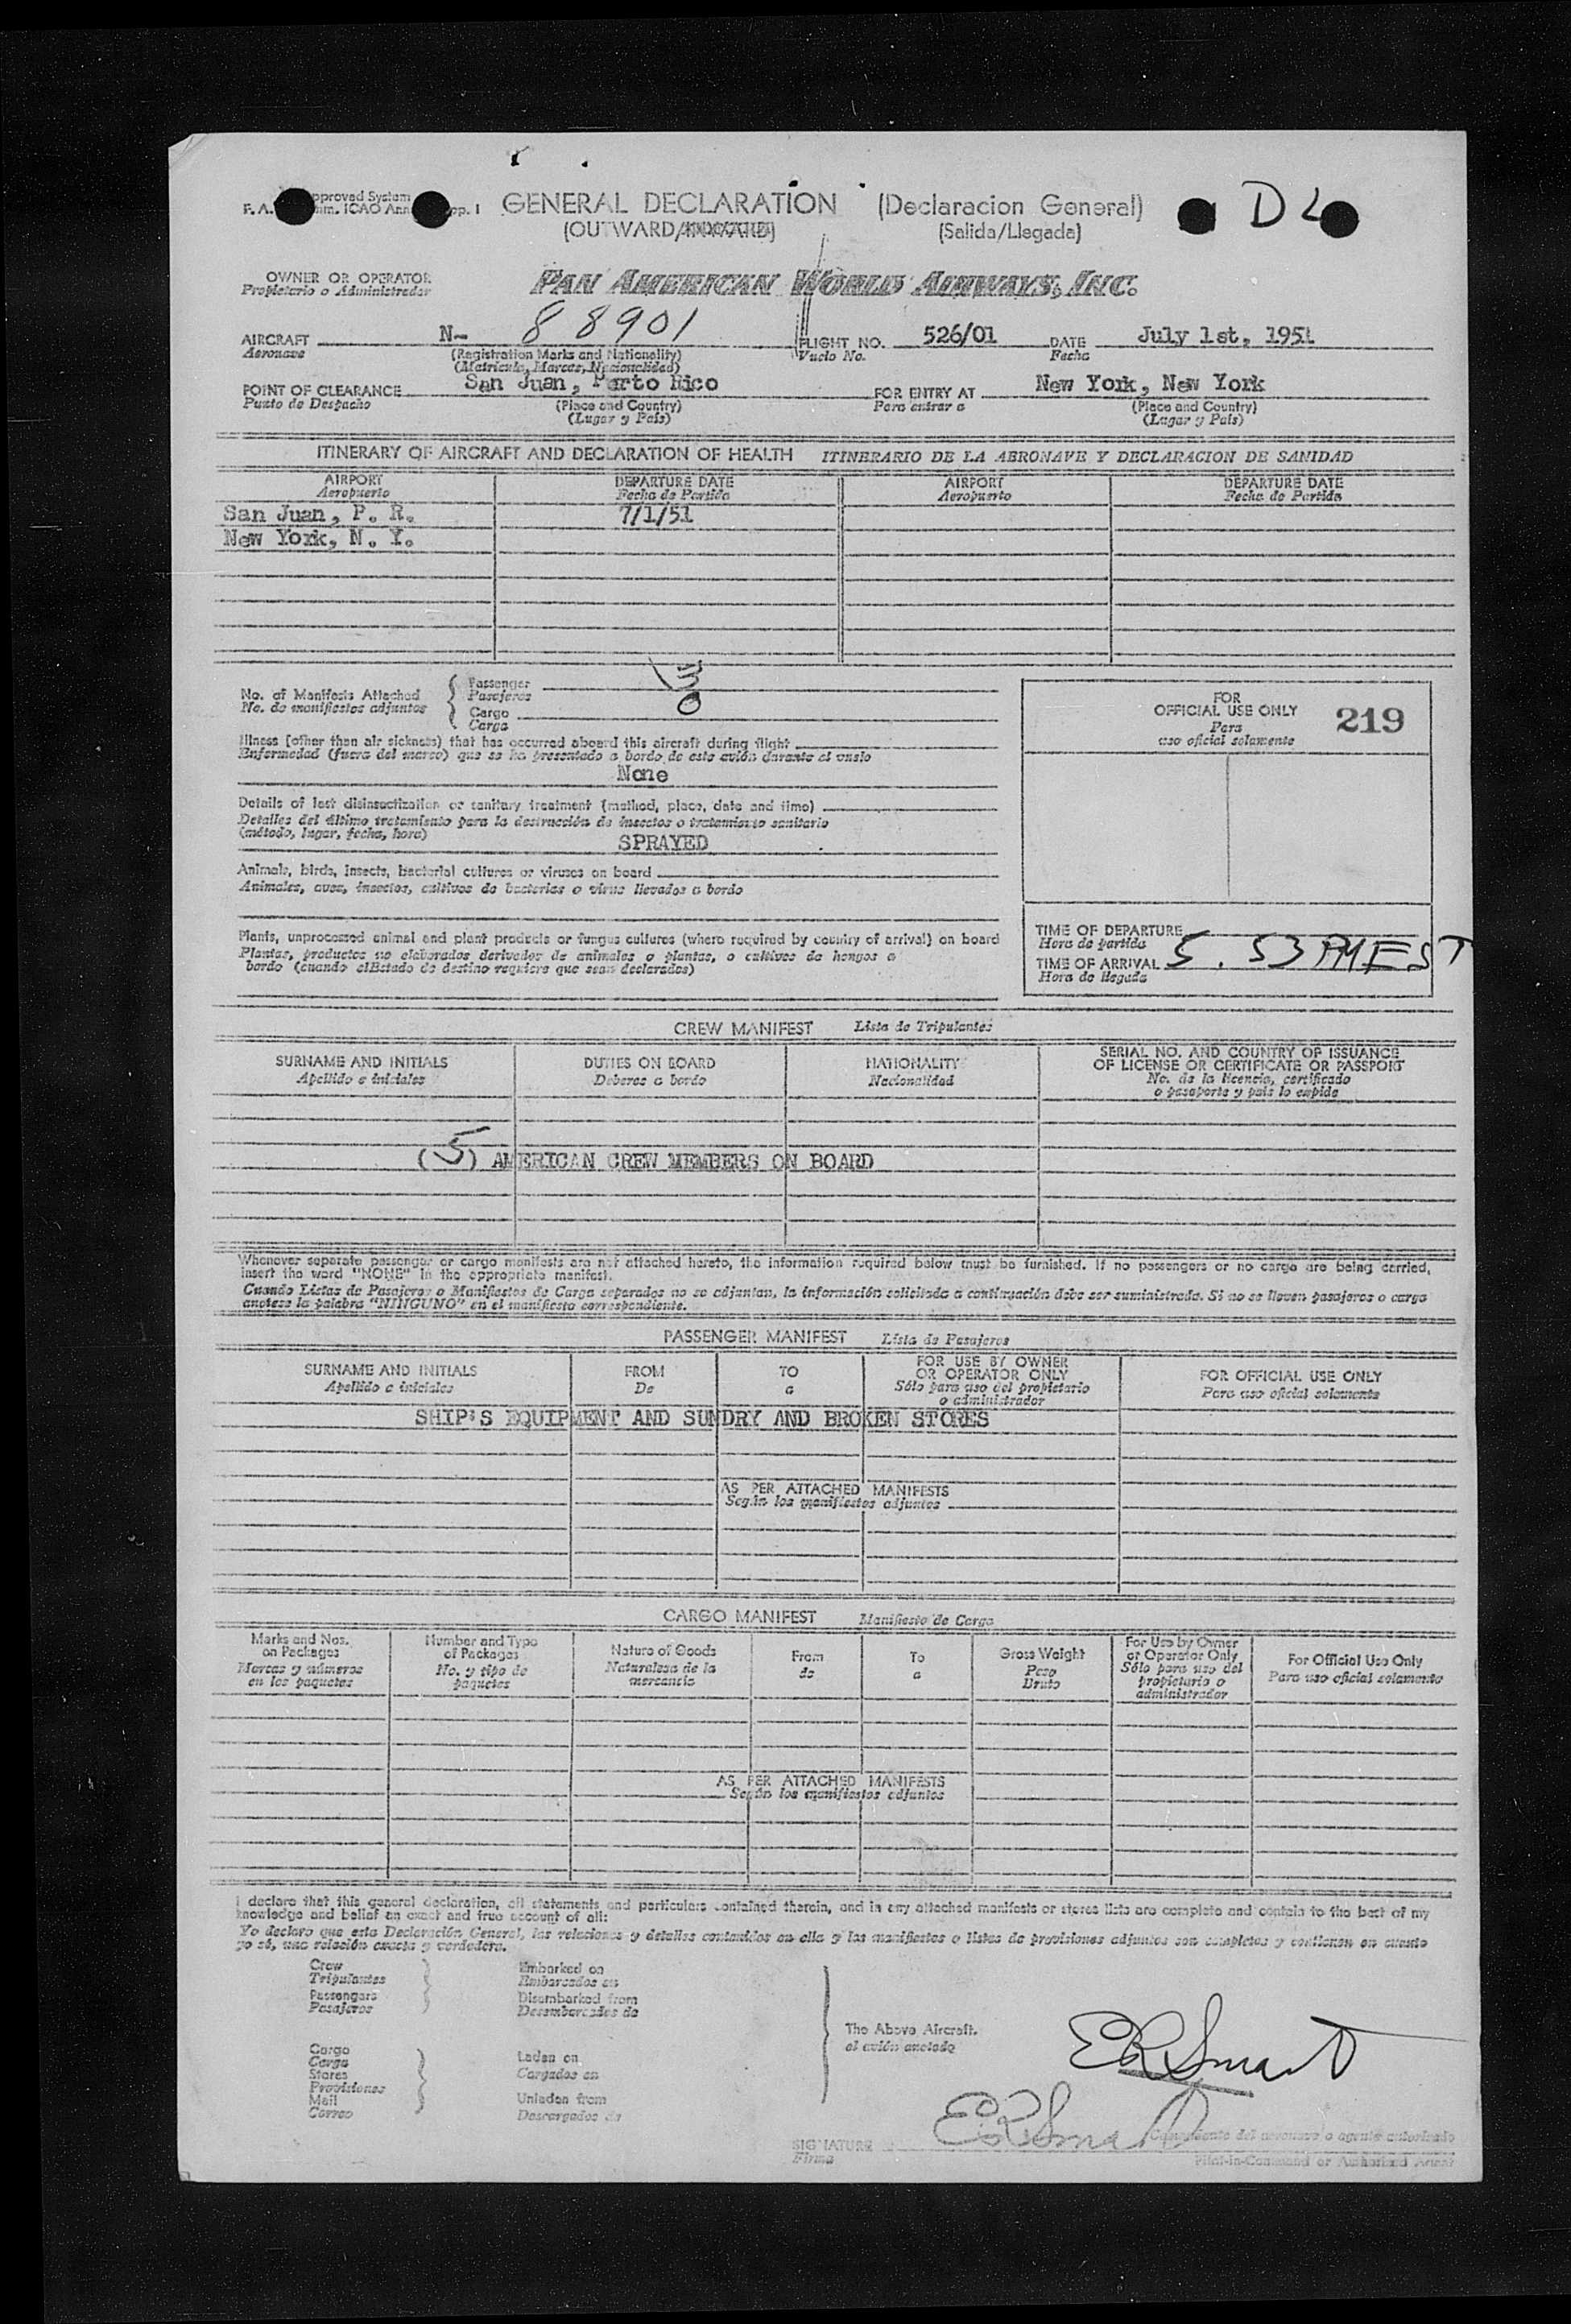 pproved System
F. A.
ICAO Ann
pp. 1
GENERAL DECLARATION (Declaracion General)
D L
(OUTWARD/INWARD) (Salida/Llegada)
OWNER OR OPERATOR
Propietario o Administrador
PAN AMERICAN WORLD AIRWAYS, INC.
AIRCRAFT N- 88901 FLIGHT NO. 526/01 DATE July 1st, 1951
Aeronave (Registration Marks and Nationality) Vuelo No. Fecha
(Matricula, Marcas, Nacionalidad)
POINT OF CLEARANCE San Juan, Porto Rico FOR ENTRY AT New York, New York
Punto de Despacho (Place and Country) Para entrar a (Place and Country)
(Lugar y País) (Lugar y País)
ITINERARY OF AIRCRAFT AND DECLARATION OF HEALTH ITINERARIO DE LA AERONAVE Y DECLARACION DE SANIDAD
AIRPORT DEPARTURE DATE AIRPORT DEPARTURE DATE
Aeropuerto Fecha de Partida Aeropuerto Fecha de Partida
San Juan, P. R. 7/1/51
New York, N. Y.
No. of Manifests Attached
No. de manifiestos adjuntos
Passenger
Pasajeros
Cargo
Carga
FOR
OFFICIAL USE ONLY
Para
uso oficial solamente
219
Illness (other than air sickness) that has occurred aboard this aircraft during flight
Enfermedad (fuera del mareo) que se ha presentado a bordo de este avión durante el vuelo
None
Details of last disinsectization or sanitary treatment (method, place, date and time)
Detalles del último tratamiento para la destrucción de insectos o tratamiento sanitario
(método, lugar, fecha, hora)
SPRAYED
Animals, birds, insects, bacterial cultures or viruses on board
Animales, aves, insectos, cultivos de bacterias o virus llevados a bordo
Plants, unprocessed animal and plant products or fungus cultures (where required by country of arrival) on board
Plantas, productos no elaborados derivados de animales o plantas, o cultivos de hongos a
bordo (cuando el Estado de destino requiere que sean declarados)
TIME OF DEPARTURE
Hora de partida
TIME OF ARRIVAL 5.53 PM EST
Hora de llegada
CREW MANIFEST Lista de Tripulantes
SURNAME AND INITIALS DUTIES ON BOARD NATIONALITY SERIAL NO. AND COUNTRY OF ISSUANCE
OF LICENSE OR CERTIFICATE OR PASSPORT
Apellido e iniciales Deberes a bordo Nacionalidad No. de la licencia, certificado
o pasaporte y pais lo expide
(5) AMERICAN CREW MEMBERS ON BOARD
Whenever separate passenger or cargo manifests are not attached hereto, the information required below must be furnished. If no passengers or no cargo are being carried,
insert the word "NONE" in the appropriate manifest.
Cuando Listas de Pasajeros o Manifiestos de Carga separados no se adjuntan, la información solicitada a continuación debe ser suministrada. Si no se llevan pasajeros o carga
anotese la palabra "NINGUNO" en el manifiesto correspondiente.
PASSENGER MANIFEST Lista de Pasajeros
SURNAME AND INITIALS FROM TO FOR USE BY OWNER
OR OPERATOR ONLY FOR OFFICIAL USE ONLY
Apellido e iniciales De a Sólo para uso del propietario
o administrador Para uso oficial solamente
SHIP'S EQUIPMENT AND SUNDRY AND BROKEN STORES
AS PER ATTACHED MANIFESTS
Según los manifiestos adjuntos
CARGO MANIFEST Manifiesto de Carga
Marks and Nos.
on Packages
Marcas y números
en los paquetes
Number and Type
of Packages
No. y tipo de
paquetes
Nature of Goods
Naturalesa de la
mercancía
From
de
To
a
Gross Weight
Peso
Bruto
For Use by Owner
or Operator Only
Sólo para uso del
propietario o
administrador
For Official Use Only
Para uso oficial solamente
AS PER ATTACHED MANIFESTS
Según los manifiestos adjuntos
I declare that this general declaration, all statements and particulars contained therein, and in any attached manifests or stores lists are complete and contain to the best of my
knowledge and belief an exact and true account of all:
Yo declaro que esta Declaración General, las relaciones y detalles contenidos en ella y los manifiestos o listas de provisiones adjuntos son completos y contienen en cuanto
yo sé, una relación exacta y verdadera.
Crew
Tripulantes
Passengers
Pasajeros
Embarked on
Embarcados en
Disembarked from
Desembarcados de
Cargo
Carga
Stores
Provisiones
Mail
Correo
Laden on
Cargados en
Unladen from
Descargados de
The Above Aircraft.
el avión anotado
E R Smart
E R Smart
SIGNATURE
Firma
Comandante del aeronave o agente autorizado
Pilot-in-Command or Authorized Agent